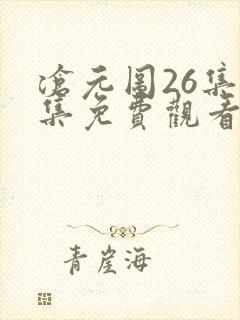 滄元圖26集
集免費觀看
青崖海